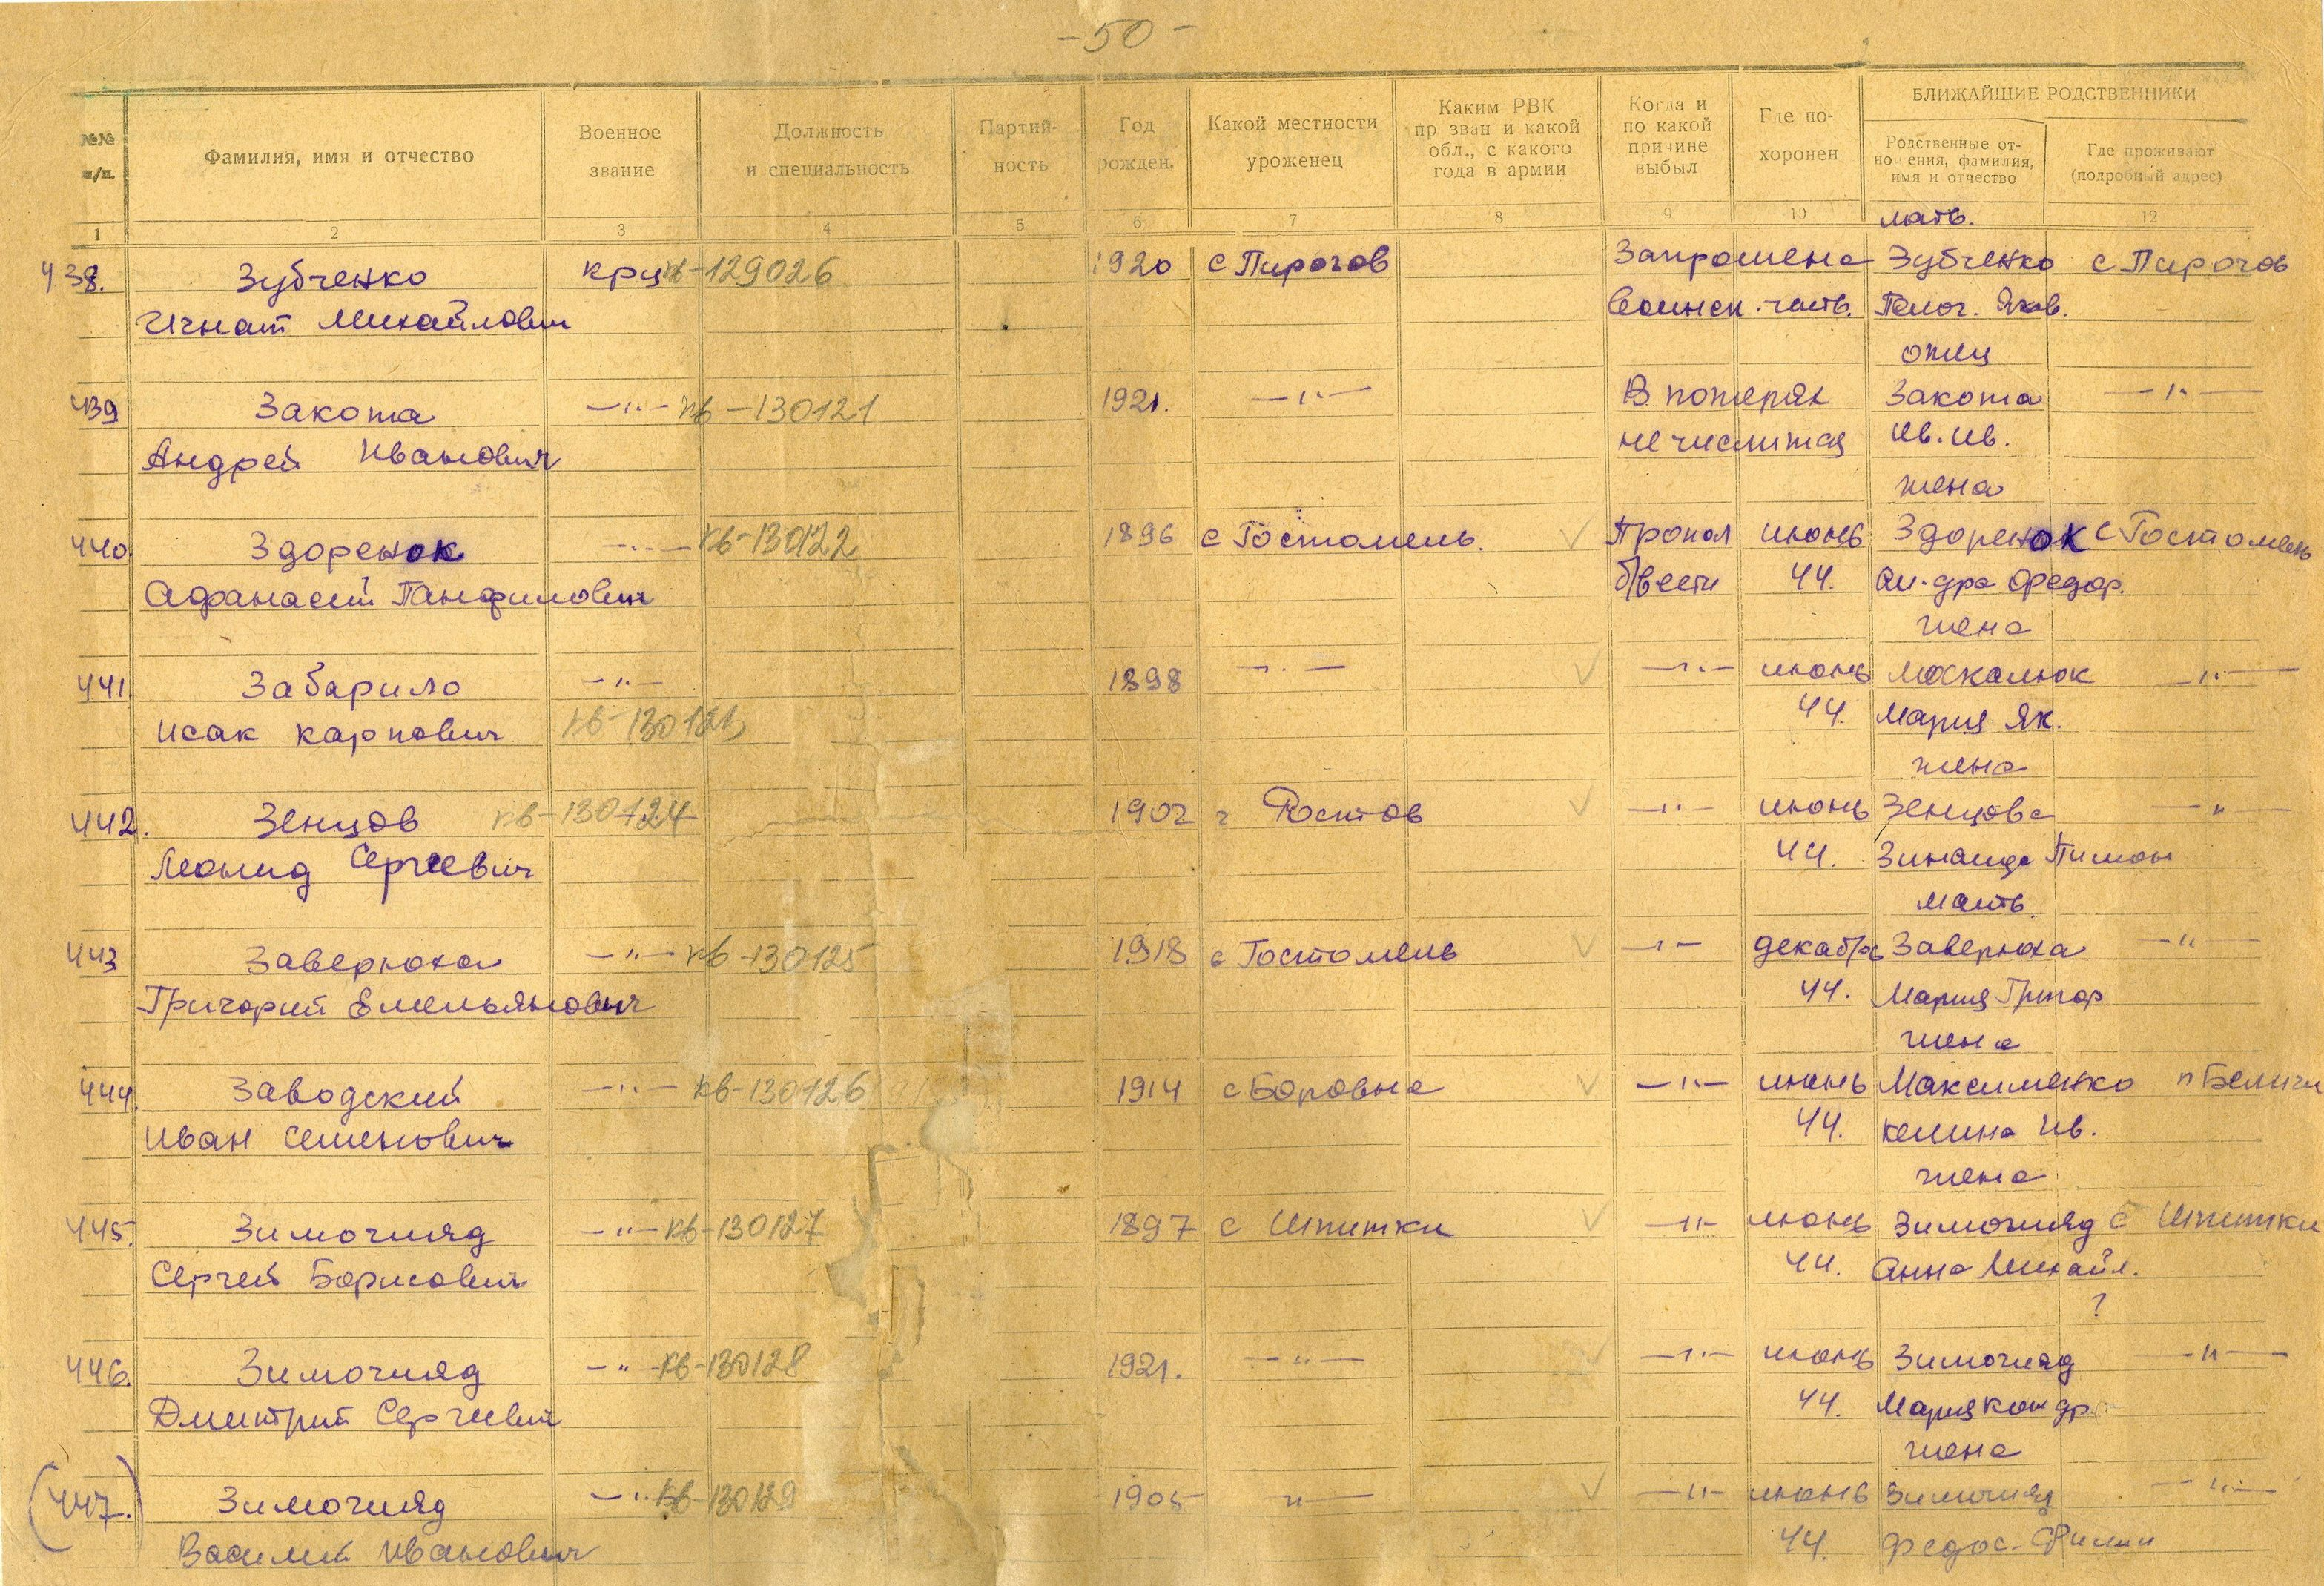 -50-
№№ п/п.
Фамилия, имя и отчество
Военное звание
Должность и специальность
Партий-ность
Год рожден.
Какой местности уроженец
Каким РВК пр зван и какой обл., с какого года в армии
Когда и по какой причине выбыл
Где по-хоронен
БЛИЖАЙШИЕ РОДСТВЕННИКИ
Родственные от-но ения, фамилия, имя и отчество
Где проживают (подробный адрес)
1 2 3 4 5 6 7 8 9 10 12
мать.
438. Зубченко крц кв-129026 1920 с Пирогов Запрошена Зубченко с Пирогов
Игнат Михайлович воинск. часть. Пелаг. Яков.
отец
439 Закота —"— кв-130121 1921. —"— В потерях Закота —"—
Андрей Иванович не числится Ив. Ив.
жена
440. Здоренок —"— кв-130122 1896 с Гостомель. Пропал июнь Здоренок с Гостомель
Афанасий Панфилович б/вести 44. Ал-дра Федор.
жена
441. Забарило —"— 1898 —"— —"— июнь Москалюк —"—
Исак Карпович кв-130123 44. Мария Як.
жена
442. Зенцов кв-130124 1902 г Ростов —"— июнь Зенцова —"
Леонид Сергеевич 44. Зинаида
мать
443 Заверюха —"— кв-130125 1918 с Гостомель —"— декабрь Заверюха —"—
Григорий Емельянович 44. Мария Григор
жена
444. Заводский —"— кв-130126 1914 с Боровна —"— июнь Максименко п Беличи
Иван Семенович 44. Ив.
жена
445. Зимогляд —"— кв-130127 1897 с Шпитки —"— июнь Зимогляд с Шпитки
Сергей Борисович 44. Анна Михайл.
?
446. Зимогляд —" кв-130128 1921. —"— —"— июнь Зимогляд —"—
Дмитрий Сергеевич 44. Мария Кондр
жена
(447.) Зимогляд —" кв-130129 1905 "— —"— июнь Зимогляд —"—
Василий Иванович 44. Федос. Филип